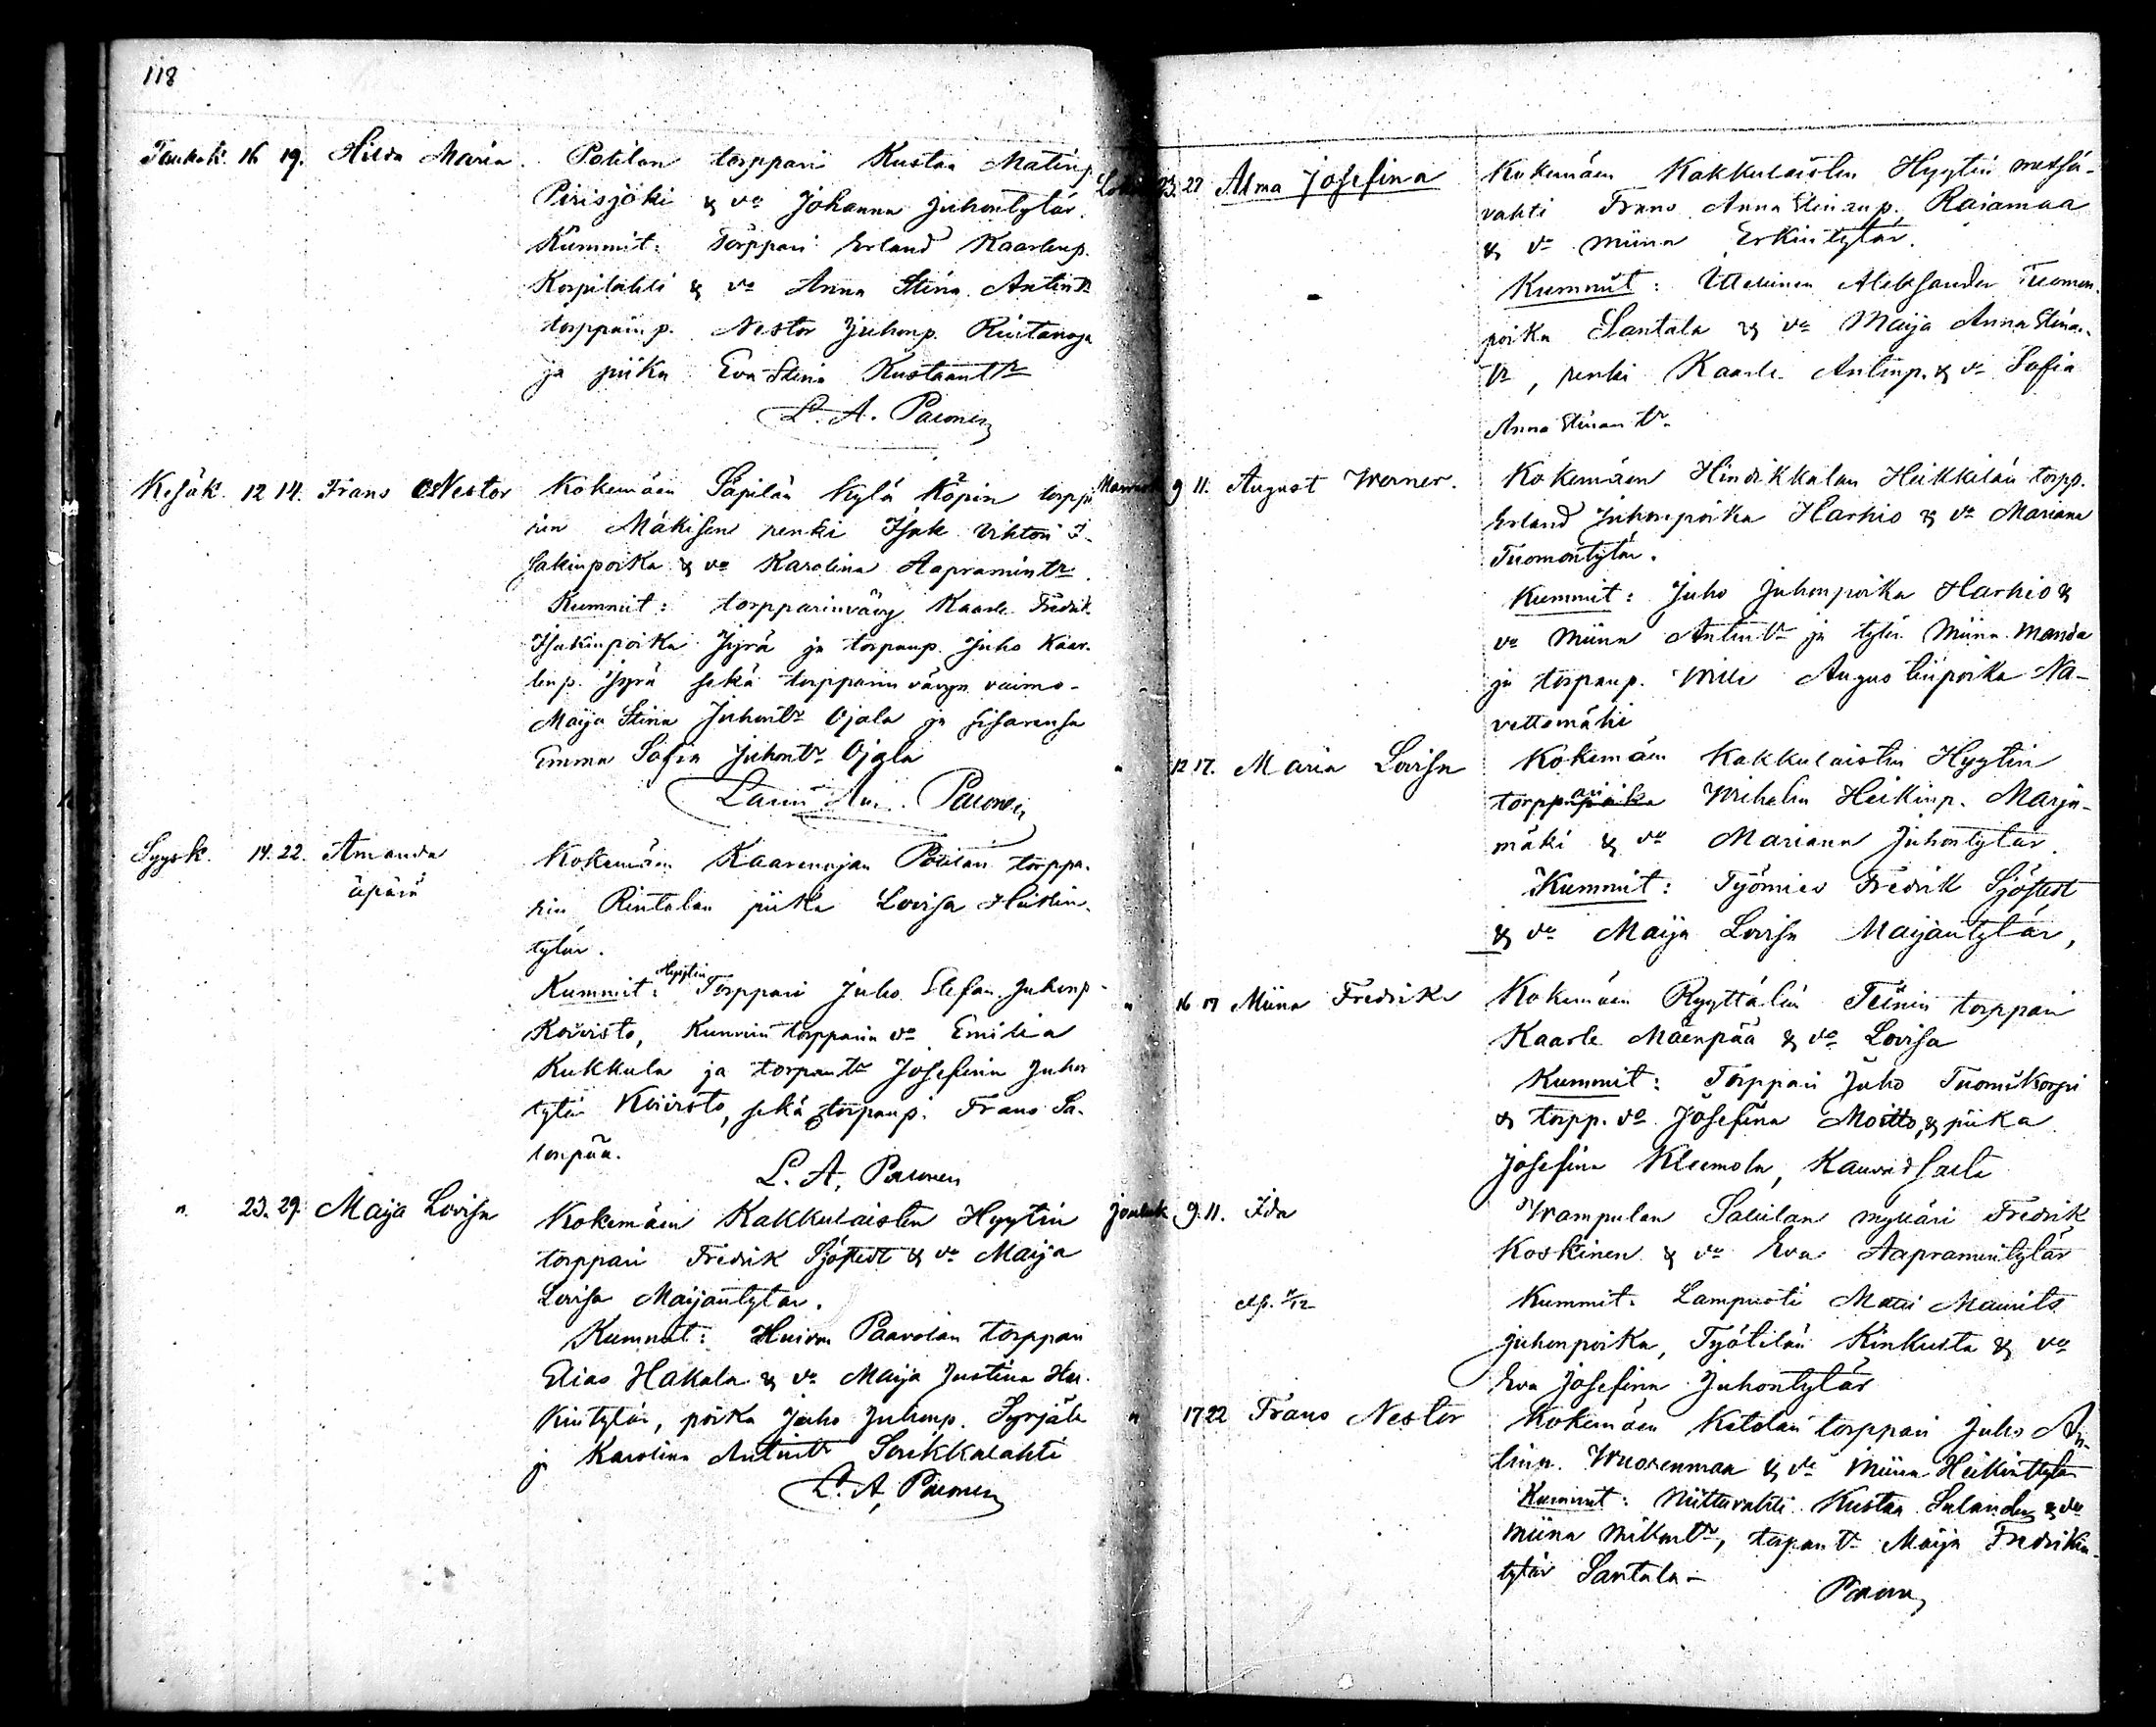 118
Toukok. 16 19. Hilda Maria. Potilan torppari Kustaa Matinp.
Pirisjoki & vo Johanna Juhontytär.
Kummit: Torppari Erland Kaarlenp.
Korpilahti & vo Anna Stina Antintr
torpparinp. Nestor Juhonp. Rintanoja
ja piika Eva Stina Kustaantr
L. A. Paeonen
Kesäk. 12 14. Frans Nestor Kokemäen Säpilän kylä Köpin torppa
rin Mäkisen renki Isak Vihtori I-
sakinpoika & vo Karolina Aapramintr.
Kummit: torpparinvävy Kaarle Fredrik
Isakinpoika Jyrä ja torpanp. Juho Kaar-
lenp. Jyrä sekä torpparin vävyn vaimo-
Maija Stina Juhontr Ojala ja sisarensa
Emma Sofia Juhontr Ojala
Lauri Paeonen
Syysk. 14. 22. Amanda Kokemäen Kaarenojan Potilan torppa-
äpärä
rin Rintalan piika Lovisa Heikin-
tytär.
Kummit: Hyytin Torppari Juho Stefan Juhonp-
Koivisto, torpparin vo Emilia
Kukkula ja torpantr Josefina Juhon
tytär Koivisto, sekä torpanp. Frans Sa-
lonpää.
L. A. Paeonen
" 23. 29. Maija Lovisa Kokemäen Kakkulaisten Hyytin
torppari Fredrik Sjöstedt & vo Maija
Lovisa Maijantytär.
Kummit: Huivon Paavolan torppari
Elias Hakala & vo Maija Justina Hei-
kintytär, poika Juho Juhonp. Syrjälä
ja Karolina Antintr Sorikkalahti
L. A. Paeonen
Lokak. 23. 27 Alma Josefina Kokemäen Kakkulaisten Hyytin metsä-
vahti Frans Anna Stinanp. Raiamaa
& vo Miina Erkintytär.
Kummit: Itsellinen Aleksander Tuomon
poika Santala & vo Maija Anna Stinan
tr, renki Kaarle Antinp. & vo Sofia
Anna Stinan tr.
Marrask. 9 11. August Werner. Kokemäen Hindikkalan Heikkilän torpp.
Erland Juhonpoika Harhio & vo Mariana
Tuomontytär.
Kummit: Juho Juhonpoika Harhio &
vo Miina Antintr ja tytär Miina Manda
ja torpanp. Wille Augustinpoika Na-
vettomäki
" 12 17. Maria Lovisa Kokemäen Kakkulaisten Hyytin
torppari Wihelm Heikinp. Marja-
mäki & vo Mariana Juhontytär.
Kummit: Työmies Fredrik Sjöstedt
& vo Maija Lovisa Maijantytär,
" 16 17 Miina Fredrika Kokemäen Ryyttälän Teinin torppari
Kaarle Mäenpää & vo Lovisa
Kummit: Torppari Juho Tuomikorpi
& torpp. vo Josefina Moitto, & piika
Josefina Kleemola, Kauvatsalta
Jouluk 9. 11. Ida Wampulan Sallilan mylläri Fredrik
Koskinen & vo Eva Aapramintytär
Kummit: Lampuoti Matti Maurits
Juhonpoika, Työtilän Kinkusta & vo
Eva Josefina Juhontytär
" 17 22 Frans Nestor Kokemäen Ketolan torppari Juho An-
tinp. Wuorenmaa & vo Miina Heikintytär
Kummit: Niittuvahti Kustaa Salander & vo
Miina Mikontr, torpan tr Maija Fredrikin
tytär Santala -
Paeonen